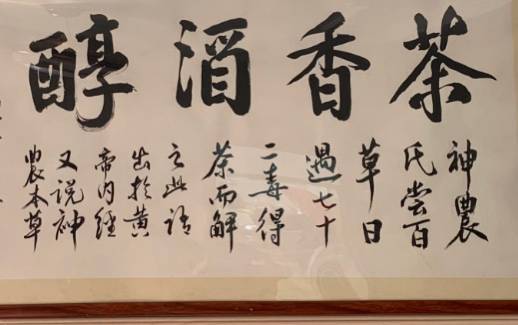 茶香酒醇
神農
氏嘗百
草日
遇七十
二毒得
茶而解
之此語
出於黄
帝内經
又说神
農本草